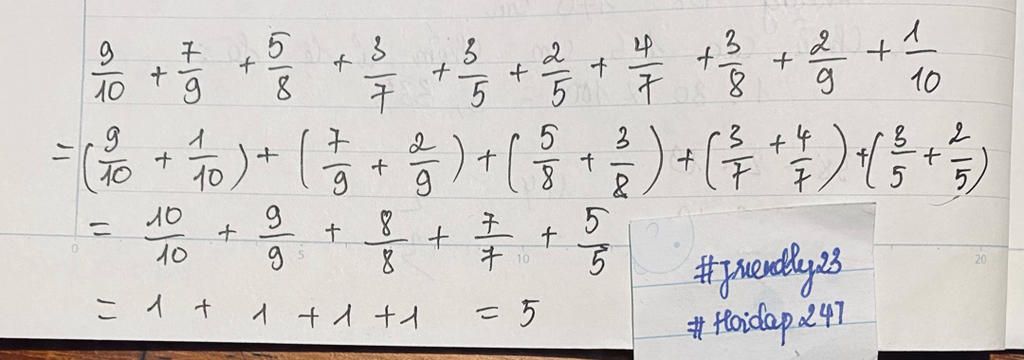 9/10 + 7/9 + 5/8 + 3/7 + 3/5 + 2/5 + 4/7 + 3/8 + 2/9 + 1/10
= (9/10 + 1/10) + (7/9 + 2/9) + (5/8 + 3/8) + (3/7 + 4/7) + (3/5 + 2/5)
= 10/10 + 9/9 + 8/8 + 7/7 + 5/5
= 1 + 1 + 1 + 1 = 5
0 5 10 20
#friendly23
#Hoidap247